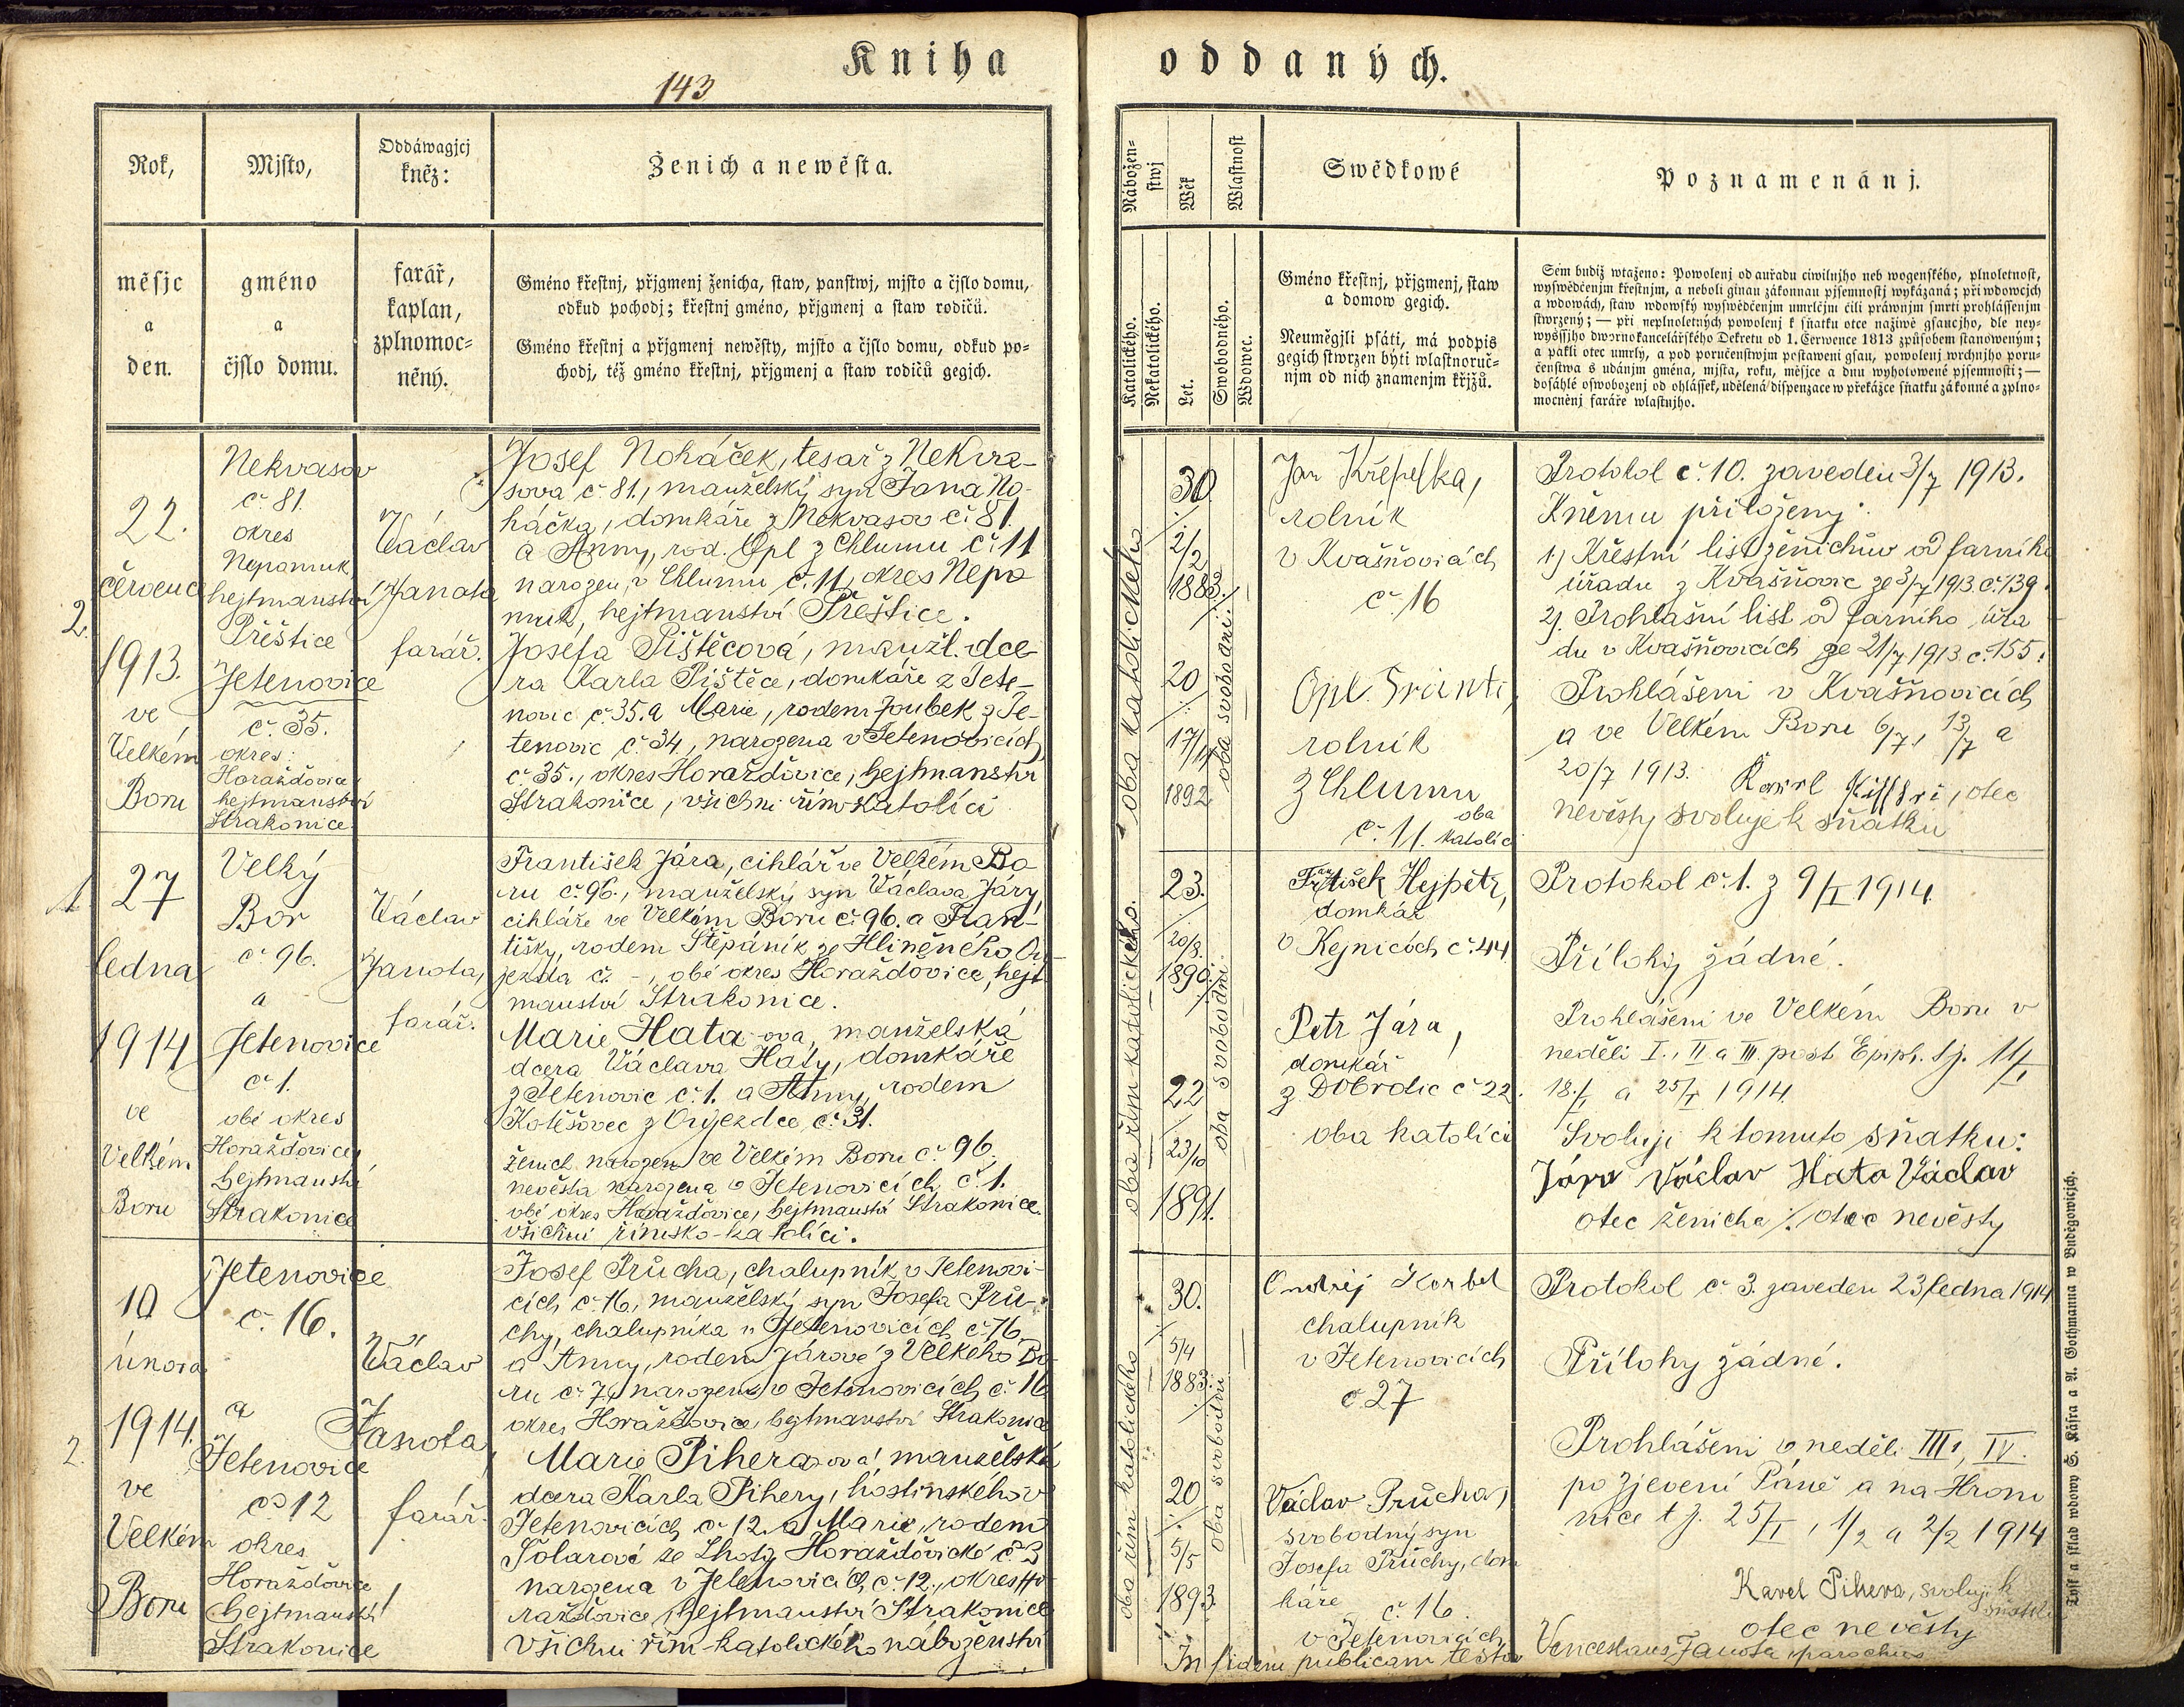 Kniha
oddaných.
143
Rok,
měsjc
a
den.
Mjsto,
gméno
a
čjslo domu.
Oddáwagjcj
kněz:
farář,
kaplan,
zplnomoc-
něný.
Ženich a newěsta.
Gméno křestnj, přjgmenj ženicha, staw, panstwj, mjsto a čjslo domu,
odkud pochodj; křestnj gméno, přjgmenj a staw rodičů.
Gméno křestnj a přjgmenj newěsty, mjsto a čjslo domu, odkud po-
chodj, též gméno křestnj, přjgmenj a staw rodičů gegich.
Nábožen-
stwj
Katolického.
Nekatolického.
Wěk
Let.
Wlastnost
Swobodného.
Wdowec.
Swědkowé
Gméno křestnj, přjgmenj, staw
a domow gegich.
Neumějgjli psáti, má podpis
gegich stwrzen býti wlastnoruč-
njm od nich znamenjm křjžů.
Poznamenánj.
Sem budiž wtaženo: Powolenj od auřadu ciwilnjho neb wogenského, plnoletnost,
wyswědčenjm křestnjm, a neboli ginau zákonnau pjsemnostj wykázaná; při wdowcjch
a wdowách, staw wdowský wyswědčenjm umrlčjm čili práwnjm smrti prohlášenjm
stwrzený; — při neplnoletných powolenj k sňatku otce nažiwě gsaucjho, dle ney-
wyššjho dwornokancelářského Dekretu od 1. Července 1813 způsobem stanoweným;
a pakli otec umrlý, a pod poručenstwjm postaweni gsau, powolenj wrchnjho poru-
čenstwa s udánjm gména, mjsta, roku, měsjce a dnu wyhotowené pjsemnosti; —
dosáhlé oswobozenj od ohlášek, udělená dispenzace w překážce sňatku zákonné a zplno-
mocněnj faráře wlastnjho.
2.
22.
července
1913.
ve
Velkém
Boru
Nekvasov
č. 81.
okres
Nepomuk,
hejtmanství
Přeštice
Jetenovice
č. 35.
okres
Horažďovice
hejtmanství
Strakonice.
Václav
Janota
farář.
Josef Noháček, tesař z Nekva-
sova č. 81., manželský syn Jana No-
háčka, domkáře z Nekvasov č. 81.
a Anny, rod. Opl z Chlumu č. 11
narozen v Chlumu č. 11, okres Nepo
muk, hejtmanství Přeštice.
Josefa Pištěcová, manžl. dce-
ra Karla Pištěce, domkáře z Jete-
novic č. 35. a Marie, rodem Joubek z Je-
tenovic č. 34, narozena v Jetenovicích
č. 35., okres Horažďovice, hejtmanství
Strakonice, všichni řím. katolíci
oba katolického
30
2/2
1883.
20
17/11
1892
oba svobodní
Jan Křepelka,
rolník
v Kvašňovicích
č. 16
Opl
rolník
z Chlumu
č. 11.
oba
katolíci
Protokol č. 10. zaveden 3/7 1913.
K němu přiloženy:
1) Křestní list ženichův od farního
úřadu z Kvašňovic ze 3/7 1913. č. 139.
2). Prohlašní list od farního úřa
du v Kvašňovicích ze 21/7 1913. č. 155.
Prohlášeni v Kvašňovicích
a ve Velkém Boru 6/7, 13/7 a
20/7 1913.
Karel, otec
nevěsty svoluje k sňatku
1
27
ledna
1914
ve
Velkém
Boru
Velký
Bor
č. 96.
a
Jetenovice
č. 1.
obé okres
Horažďovice,
hejtmanství
Strakonice
Václav
Janota,
farář.
František Jára, cihlář ve Velkém Bo-
ru č. 96., manželský syn Václava Járy,
cihláře ve Velkém Boru č. 96. a Fran-
tišky, rodem Štěpáník ze Hliněného Ou-
jezda č. -, obé okres Horažďovice, hejt-
manství Strakonice.
Marie Hata-ova, manželská
dcera Václava Haty, domkáře
z Jetenovic č. 1. a Anny, rodem
Kotěšovec z Oujezdce, č. 31.
ženich narozen ve Velkém Boru č. 96.
nevěsta narozena v Jetenovicích č. 1.
obé okres Horažďovice, hejtmanství Strakonice.
všichni římsko-katolíci.
oba řím. katolického.
23.
20/8.
1890.
22
23/10
1891.
oba svobodni
Frtišek Hejpetr,
domkář
v Kejnicích č. 44
Petr Jára,
domkář
z Dobrotic č. 22.
oba katolíci
Protokol č. 1. z 9/I 1914.
Přílohy žádné.
Prohlášeni ve Velkém Boru v
neděli I., II. a III. post Epiph. t.j. 11/I
18./I. a 25/I 1914.
Svolují k tomuto sňatku:
Jára Václav Hata Václav
otec ženicha ./. otec nevěsty
2.
10
února
1914.
ve
Velkém
Boru
Jetenovice
č. 16.
a
Jetenovice
č. 12
okres
Horažďovice
hejtmanství
Strakonice
Václav
Janota,
farář.
Josef Průcha, chalupník v Jetenovi-
cích č. 16, manželský syn Josefa Prů-
chy, chalupníka v Jetenovicích č. 16
a Anny, rodem Járové z Velkého Bo-
ru č. 7, narozen v Jetenovicích č. 16
okres Horažďovice, hejtmanství Strakonice
Marie Pihera-ová manželská
dcera Karla Pihery, hostinského v
Jetenovicích č. 12. a Marie, rodem
Solarové ze Lhoty Horažďovické č. 3
narozena v Jetenovicích, č. 12., okres Ho-
ražďovice, hejtmanství Strakonice
všichni řím-katolického náboženství
oba řím. katolického
30.
5/4
1883.
20
5/5
1893.
oba svobodni
Ondřej Korbel
chalupník
v Jetenovicích
č. 27
Václav Průcha,
svobodný syn
Josefa Průchy, dom
káře
č. 16.
v Jetenovicích
Protokol č. 3. zaveden 23 ledna 1914
Přílohy žádné.
Prohlášeni v neděli III., IV.
po Zjevení Páně a na Hrom
nice t. j. 25/I, 1/2 a 2/2 1914
Karel Pihera, svoluji k
sňatku
otec nevěsty
In fidem publicam testor Venceslaus Janota parochus
Tisk a sklad wdowy S. Kásra a A. Gothmanna w Buděgowicjch.